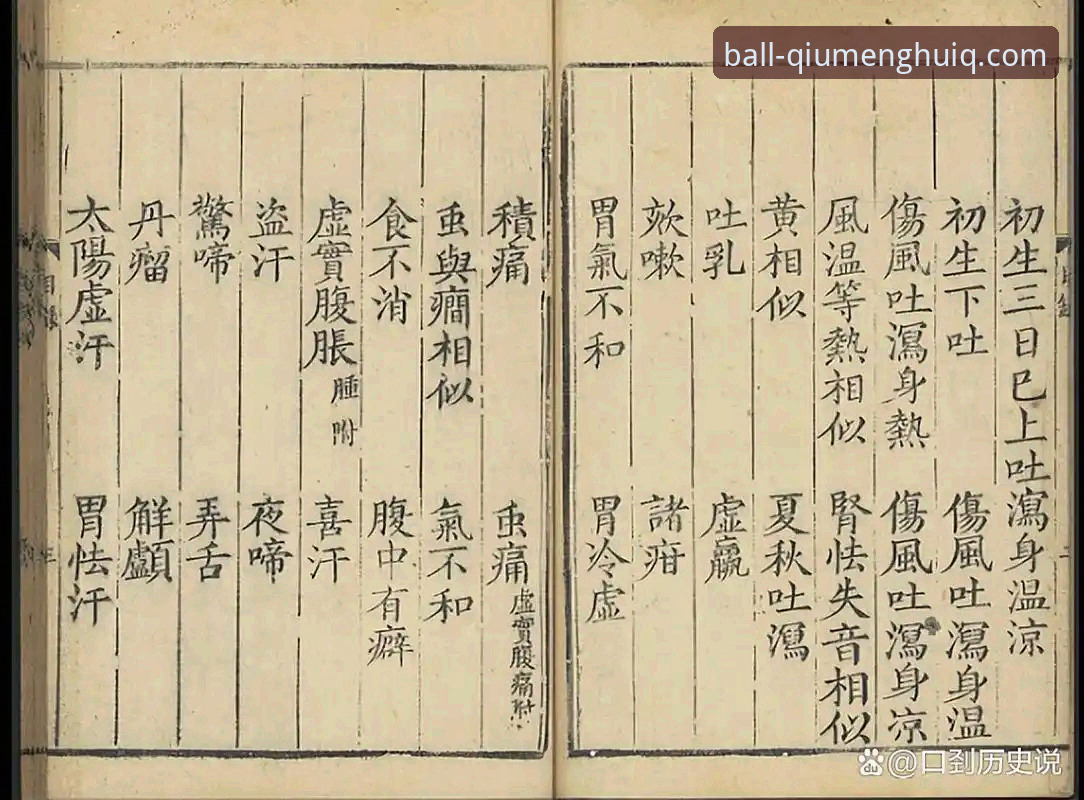 ball-qiumenghuiq.com
初生三日巳上吐瀉身温涼
初生下吐 傷風吐瀉身温
傷風吐瀉身熱 傷風吐瀉身凉
風温等熱相似 腎怯失音相似
黄相似 夏秋吐瀉
吐乳 虚羸
欬嗽 諸疳
胃氣不和 胃冷虚
積痛 虫痛虚實腹痛附
虫與癇相似 氣不和
食不消 腹中有癖
虚實腹脹腫附 喜汗
盗汗 夜啼
驚啼 弄舌
丹瘤 解顱
太陽虚汗 胃怯汗
@口到历史说